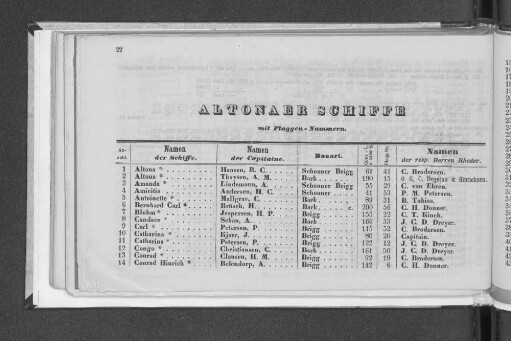 22
ALTONAER SCHIFFE
mit Flaggen-Nummern.
Namen der Schiffe. Namen der Capitaine. Bauart. Namen der resp. Herren Rheder.
1 Altona * Hansen, B. C. Schooner Brigg 61 41 C. Brodersen.
2 Altona * Thaysen, A. M. Bark 190 15
3 Amanda * Lindemann, A. Schooner Brigg 55 29 C. von Ehren.
4 Amicitia Andersen, H. C. Schooner 41 53 P. M. Petersen.
5 Antoinette * Mallgrav, C. Bark 89 31 B. Tobias.
6 Bernhard Carl * Bruhn, H. Bark 200 56 C. H. Donner.
7 Blohm * Jespersen, H. P. Brigg 155 22 C. T. Kinch.
8 Candace * Schau, A. Bark 53 J. C. D. Dreyer.
9 Carl * Petersen, P. Brigg 115 52 C. Brodersen.
10 Catharina * Kjaer, J. Brigg 80 20 Capitain.
11 Catharina * Petersen, P. Brigg 122 12 J. C. D. Dreyer.
12 Congo * Christiansen, C. Bark 161 50 J. C. D. Dreyer.
13 Conrad * Clausen, H. M. Brigg 92 19 C. Brodersen.
14 Conrad Hinrich * Belendorp, A. Brigg 142 6 C. H. Donner.